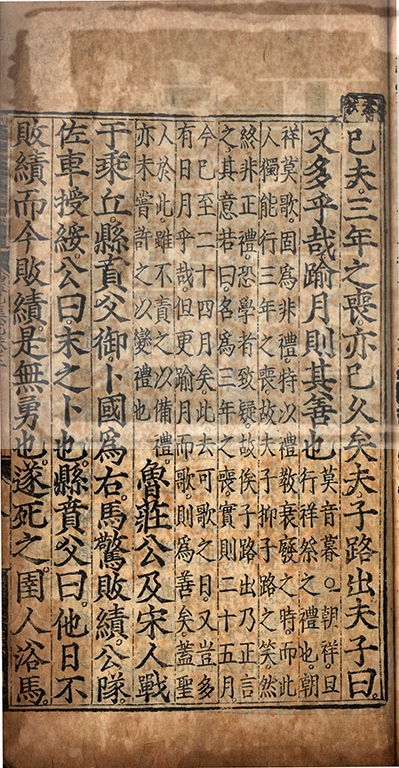 已夫。三年之喪。亦已久矣夫。子路出。夫子曰。
又多乎哉。踰月則其善也
莫音暮○朝祥旦
行祥祭之禮也。朝
祥莫歌固爲非禮。特以禮敎衰廢之時。而此
人獨能行三年之喪。故夫子抑子路之笑。然
終非正禮。恐學者致疑。故俟子路出乃正言
之。其意若曰。名爲三年之喪。實則二十五月。
今已至二十四月矣。此去可歌之日。又豈多
有日月乎哉。但更踰月而歌。則爲善矣。蓋聖
人於此雖不責之以備禮。
亦未嘗許之以變禮也
魯莊公及宋人戰
于乘丘。縣賁父御。卜國爲右。馬驚敗績。公隊。
佐車授綏。公曰末之卜也。縣賁父曰。他日不
敗績而今敗績。是無勇也。遂死之。圉人浴馬。